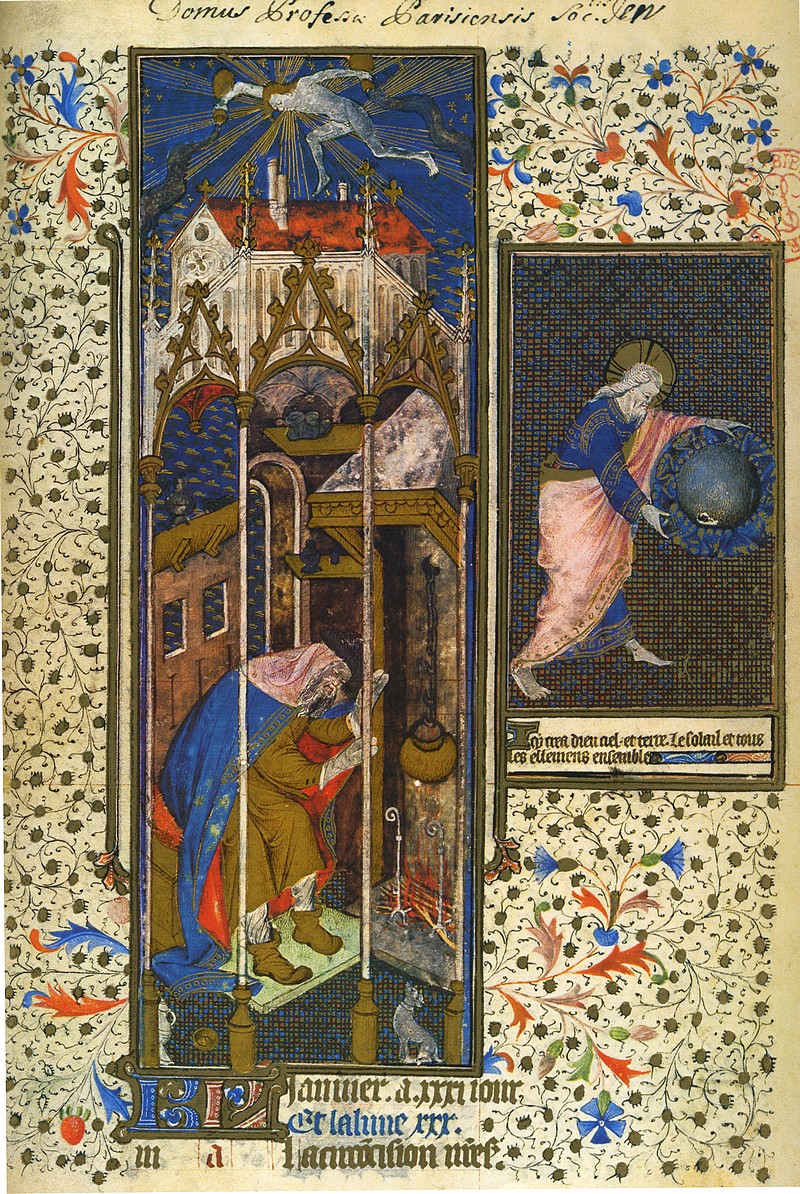 Domus Professæ Parisiensis Soc.tis Jesu
Icy crea dieu ciel. et terre. Le solail et tous
les ellemens ensemble
KL Januier. a. xxxi iour.
Et la lune xxx.
m a La circõcision